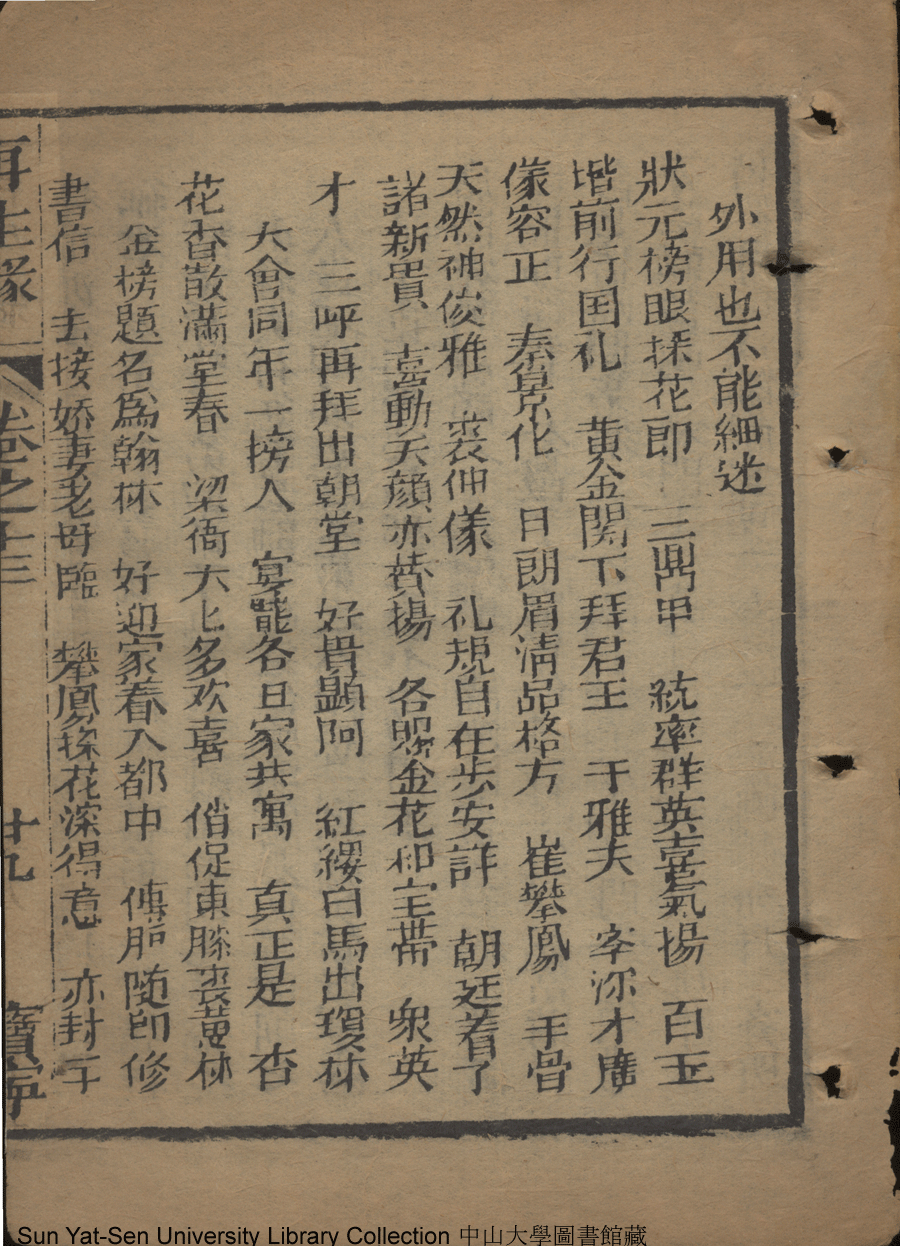 外用也不能細迷
狀元榜眼探花郎 三鼎甲 統率群英喜氣揚 百玉
堦前行国礼 黄金闕下拜君王 于雅夫 深才廣
儀容正 奉景化 日朗眉清品格方 崔攀鳳 手骨
天然神俊雅 裘仲儀 礼規自在步安詳 朝廷着了
諸新貴 喜動天顔亦賛揚 各賜金花和宝帶 衆英
才 三呼再拜出朝堂 好貴顕阿 紅纓白馬出瓊林
大會同年一榜人 宴罷各日家共寓 真正是 杏
花香散滿堂春 梁衙大上多欢喜 俏促東床裘黄林
金榜題名為翰林 好迎家眷入都中 傳胪随即修
書信 去接娇妻老母臨 攀鳳探花深得意 亦封二
再生緣 卷之十三 廿九 寶寧
Sun Yat-Sen University Library Collection 中山大學圖書館藏